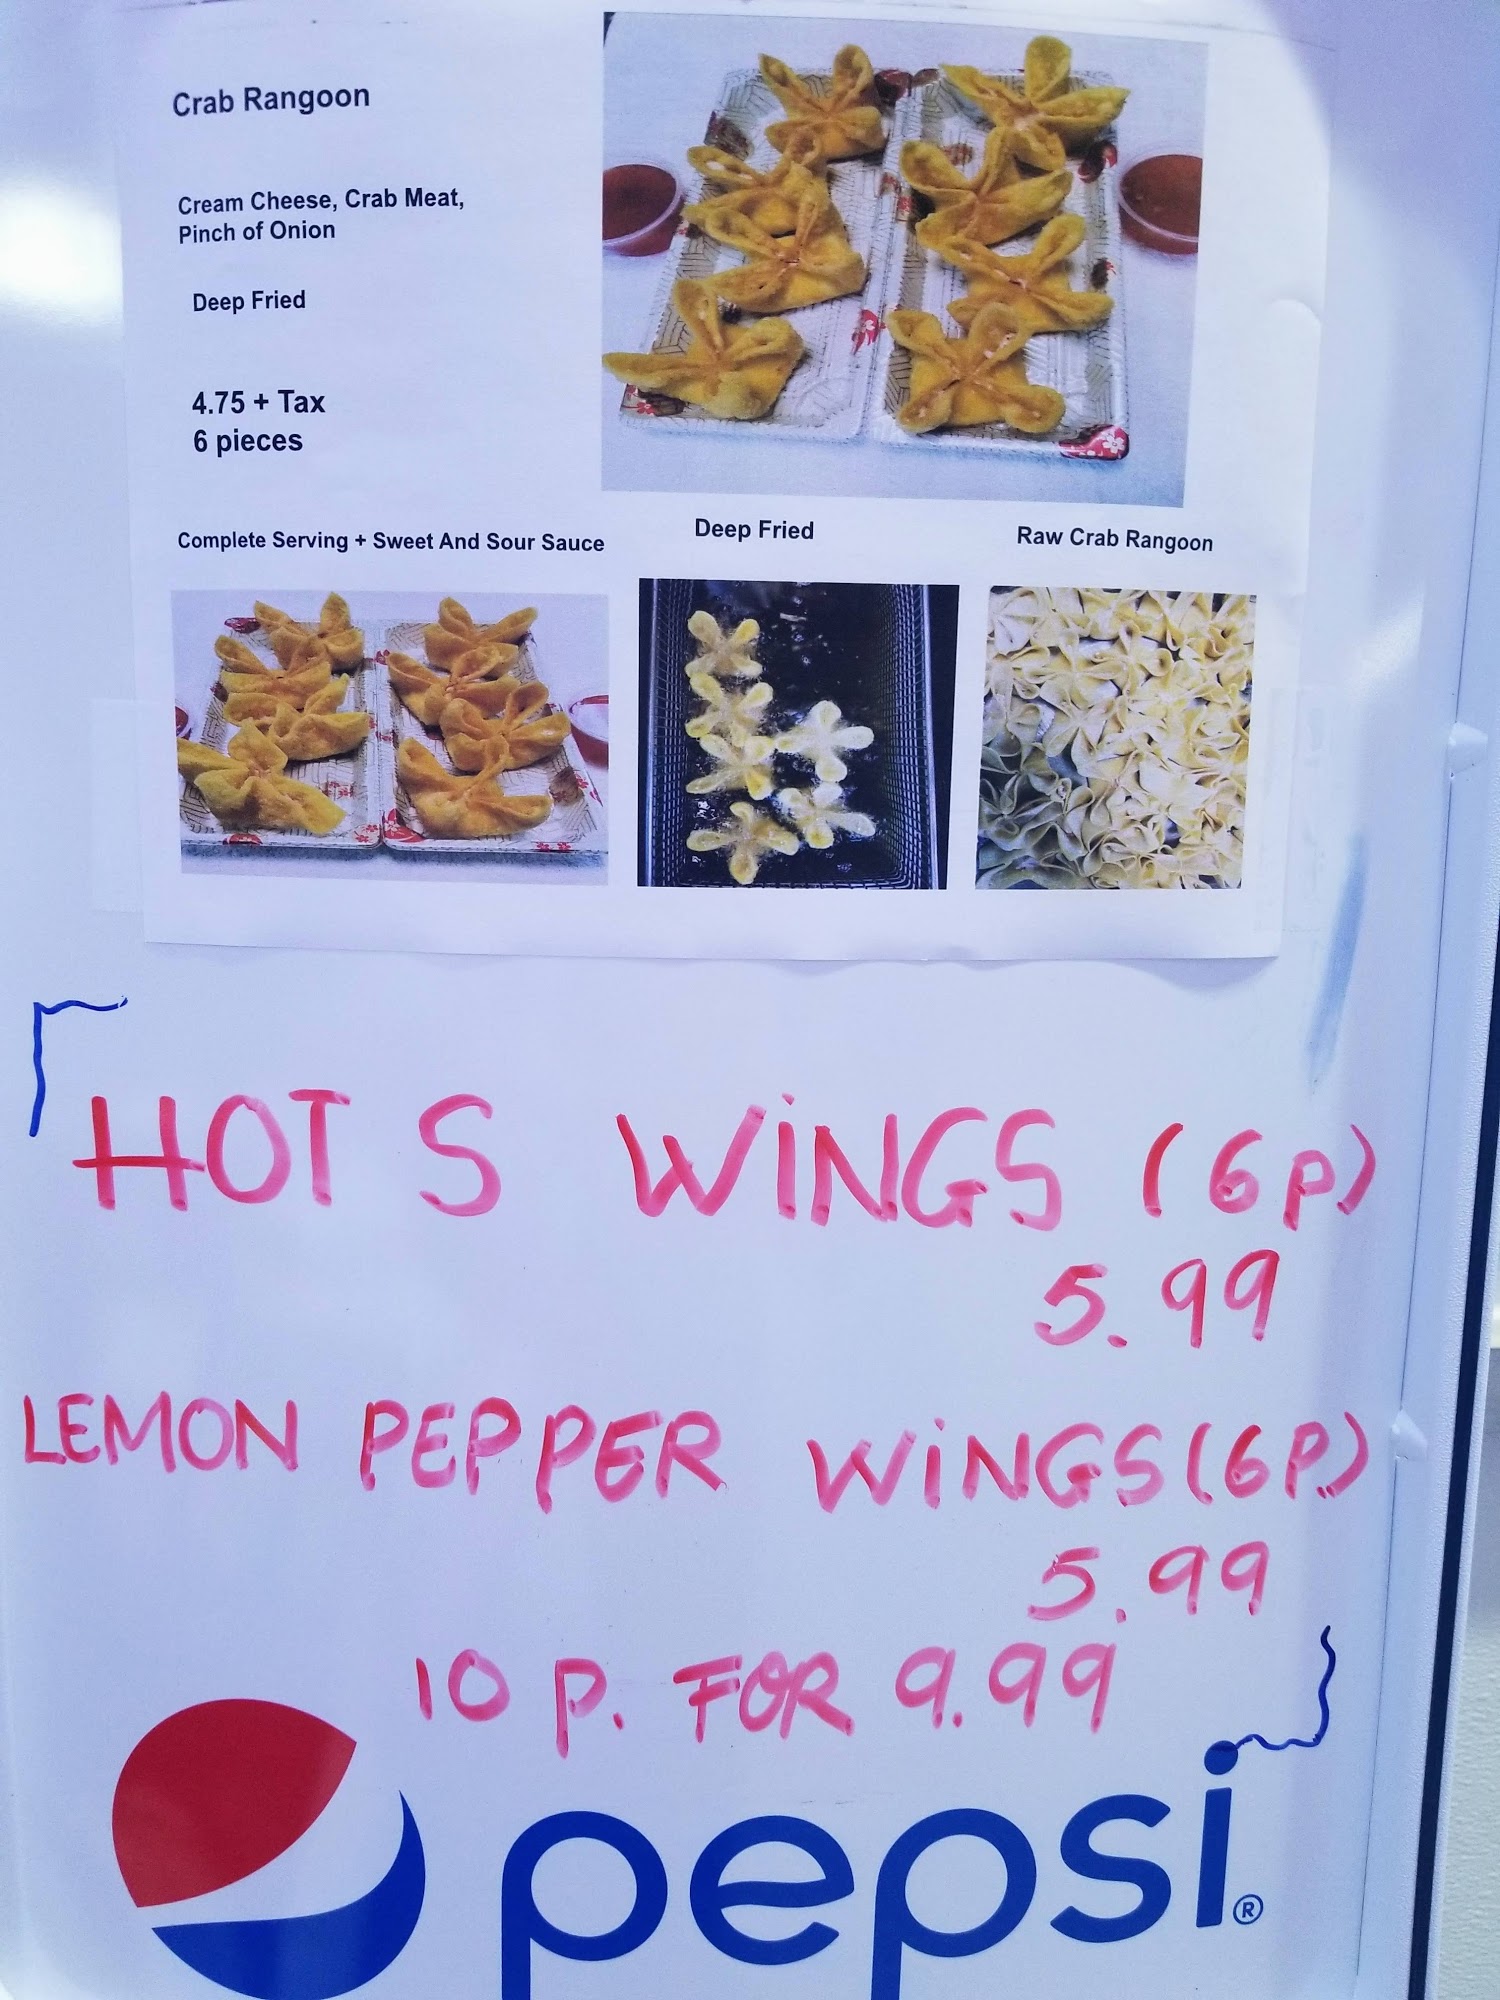 Crab Rangoon
Cream Cheese, Crab Meat,
Pinch of Onion
Deep Fried
4.75 + Tax
6 pieces
Complete Serving + Sweet And Sour Sauce
Deep Fried
Raw Crab Rangoon
HOT S WiNGS (6P)
5.99
LEMON PEPPER WiNGS (6P.)
5.99
10 P. FOR 9.99
pepsi®